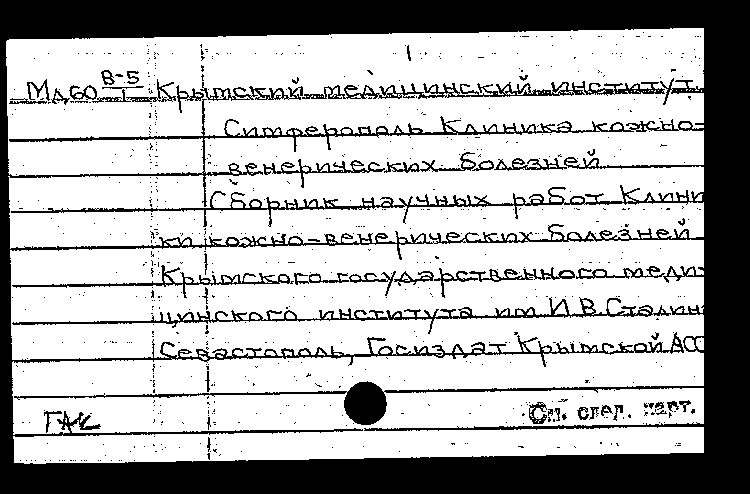 1
Мд60 В-5/1 Крымский медицинский институт.
Симферополь Клиника кожно-
венерических болезней
Сборник научных работ Клини
ки кожно-венерических болезней
Крымского государственного меди-
цинского института им И.В.Сталин
Севастополь, Госиздат Крымской АСС
ГАК
См. след. карт.